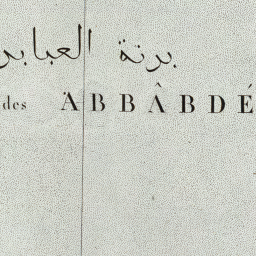 برنة العبابد
des ÄBBÂBDÉ